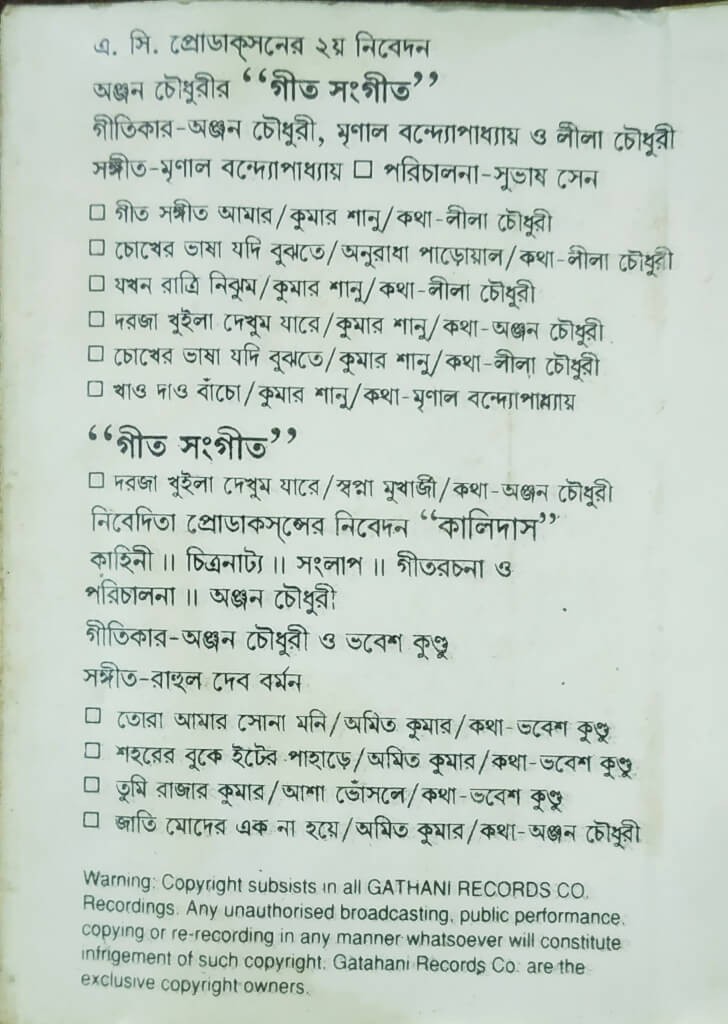 এ. সি. প্রোডাক্সনের ২য় নিবেদন
অঞ্জন চৌধুরীর “গীত সংগীত”
গীতিকার-অঞ্জন চৌধুরী, মৃণাল বন্দ্যোপাধ্যায় ও লীলা চৌধুরী
সঙ্গীত-মৃণাল বন্দ্যোপাধ্যায় □ পরিচালনা-সুভাষ সেন
□ গীত সঙ্গীত আমার/কুমার শানু/কথা-লীলা চৌধুরী
□ চোখের ভাষা যদি বুঝতে/অনুরাধা পাড়োয়াল/কথা-লীলা চৌধুরী
□ যখন রাত্রি নিঝুম/কুমার শানু/কথা-লীলা চৌধুরী
□ দরজা খুইলা দেখুম যারে/কুমার শানু/কথা-অঞ্জন চৌধুরী
□ চোখের ভাষা যদি বুঝতে/কুমার শানু/কথা-লীলা চৌধুরী
□ খাও দাও বাঁচো/কুমার শানু/কথা-মৃণাল বন্দ্যোপাধ্যায়
“গীত সংগীত”
□ দরজা খুইলা দেখুম যারে/স্বপ্না মুখার্জী/কথা-অঞ্জন চৌধুরী
নিবেদিতা প্রোডাকসন্সের নিবেদন “কালিদাস”
কাহিনী ॥ চিত্রনাট্য ॥ সংলাপ ॥ গীতরচনা ও
পরিচালনা ॥ অঞ্জন চৌধুরী
গীতিকার-অঞ্জন চৌধুরী ও ভবেশ কুণ্ডু
সঙ্গীত-রাহুল দেব বর্মন
□ তোরা আমার সোনা মনি/অমিত কুমার/কথা-ভবেশ কুণ্ডু
□ শহরের বুকে ইটের পাহাড়ে/অমিত কুমার/কথা-ভবেশ কুণ্ডু
□ তুমি রাজার কুমার/আশা ভোঁসলে/কথা-ভবেশ কুণ্ডু
□ জাতি মোদের এক না হয়ে/অমিত কুমার/কথা-অঞ্জন চৌধুরী
Warning: Copyright subsists in all GATHANI RECORDS CO.
Recordings. Any unauthorised broadcasting, public performance,
copying or re-recording in any manner whatsoever will constitute
infrigement of such copyright. Gatahani Records Co. are the
exclusive copyright owners.